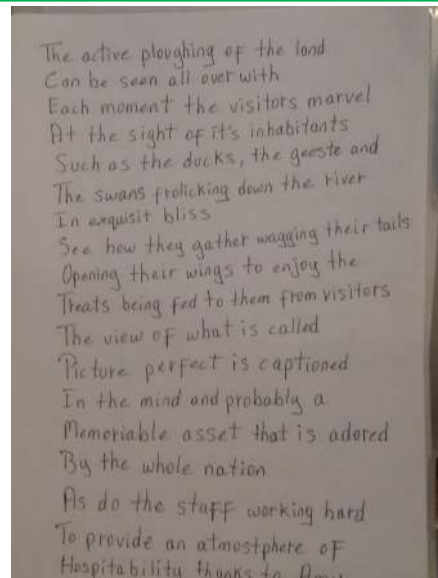 The active ploughing of the land
Can be seen all over with
Each moment the visitors marvel
At the sight of it's inhabitants
Such as the ducks, the geeste and
The swans frolicking down the river
In exquisit bliss
See how they gather wagging their tails
Opening their wings to enjoy the
Treats being fed to them from visitors
The view of what is called
Picture perfect is captioned
In the mind and probably a
Memoriable asset that is adored
By the whole nation
As do the staff working hard
To provide an atmostphere of
Hospitability thanks to